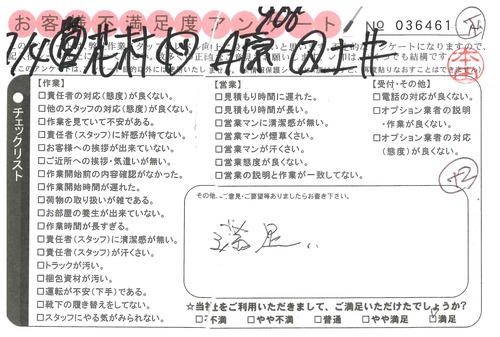 お客様不満足度アンケート
No 036461
チェックリスト
【作業】
□責任者の対応(態度)が良くない。
□他のスタッフの対応(態度)が良くない。
□作業を見ていて不安がある。
□責任者(スタッフ)に好感が持てない。
□お客様への挨拶が出来ていない。
□ご近所への挨拶・気遣いが無い。
□作業開始前の内容確認がなかった。
□作業開始時間が遅れた。
□荷物の取り扱いが雑である。
□お部屋の養生が出来ていない。
□作業時間が長すぎる。
□責任者(スタッフ)に清潔感が無い。
□責任者(スタッフ)が汗くさい。
□トラックが汚い。
□梱包資材が汚い。
□運転が不安(下手)である。
□靴下の履き替えをしてない。
□スタッフにやる気がみられない。
【営業】
□見積もり時間に遅れた。
□見積もり時間が長い。
□営業マンに清潔感が無い。
□営業マンが煙草くさい。
□営業マンが汗くさい。
□営業態度が良くない。
□営業の説明と作業が一致してない。
【受付・その他】
□電話の対応が良くない。
□オプション業者の説明
・作業が良くない。
□オプション業者の対応
(態度)が良くない。
その他、ご意見・ご要望等ありましたらお書き下さい。
満足
☆当社をご利用いただきまして、ご満足いただけたでしょうか?
□不満 □やや不満 □普通 □やや満足 □満足